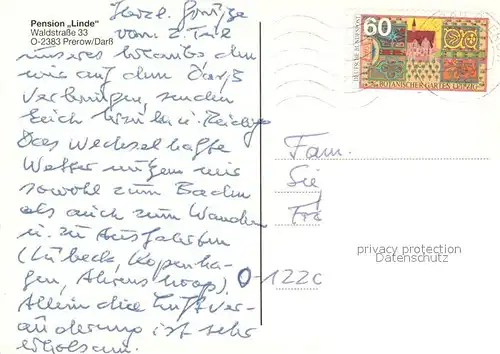 Pension „Linde"
Waldstraße 33
O-2383 Prerow/Darß
Herzl. Grüße
vom 2. Teil
unseres Urlaubs den
wir auf dem Darß
verbringen, senden
Euch
Das wechselhafte
Wetter nutzen wir
sowohl zum Baden
als auch zum Wandern
u. zu Ausfahrten
(Lübeck, Kopenha-
gen, Ahrenshoop).
Allein die Luftver-
änderung ist sehr
erholsam.
60
DEUTSCHE BUNDESPOST
BOTANISCHER GARTEN LEIPZIG
Fam.
Sie
Fra
O-122C
privacy protection
Datenschutz